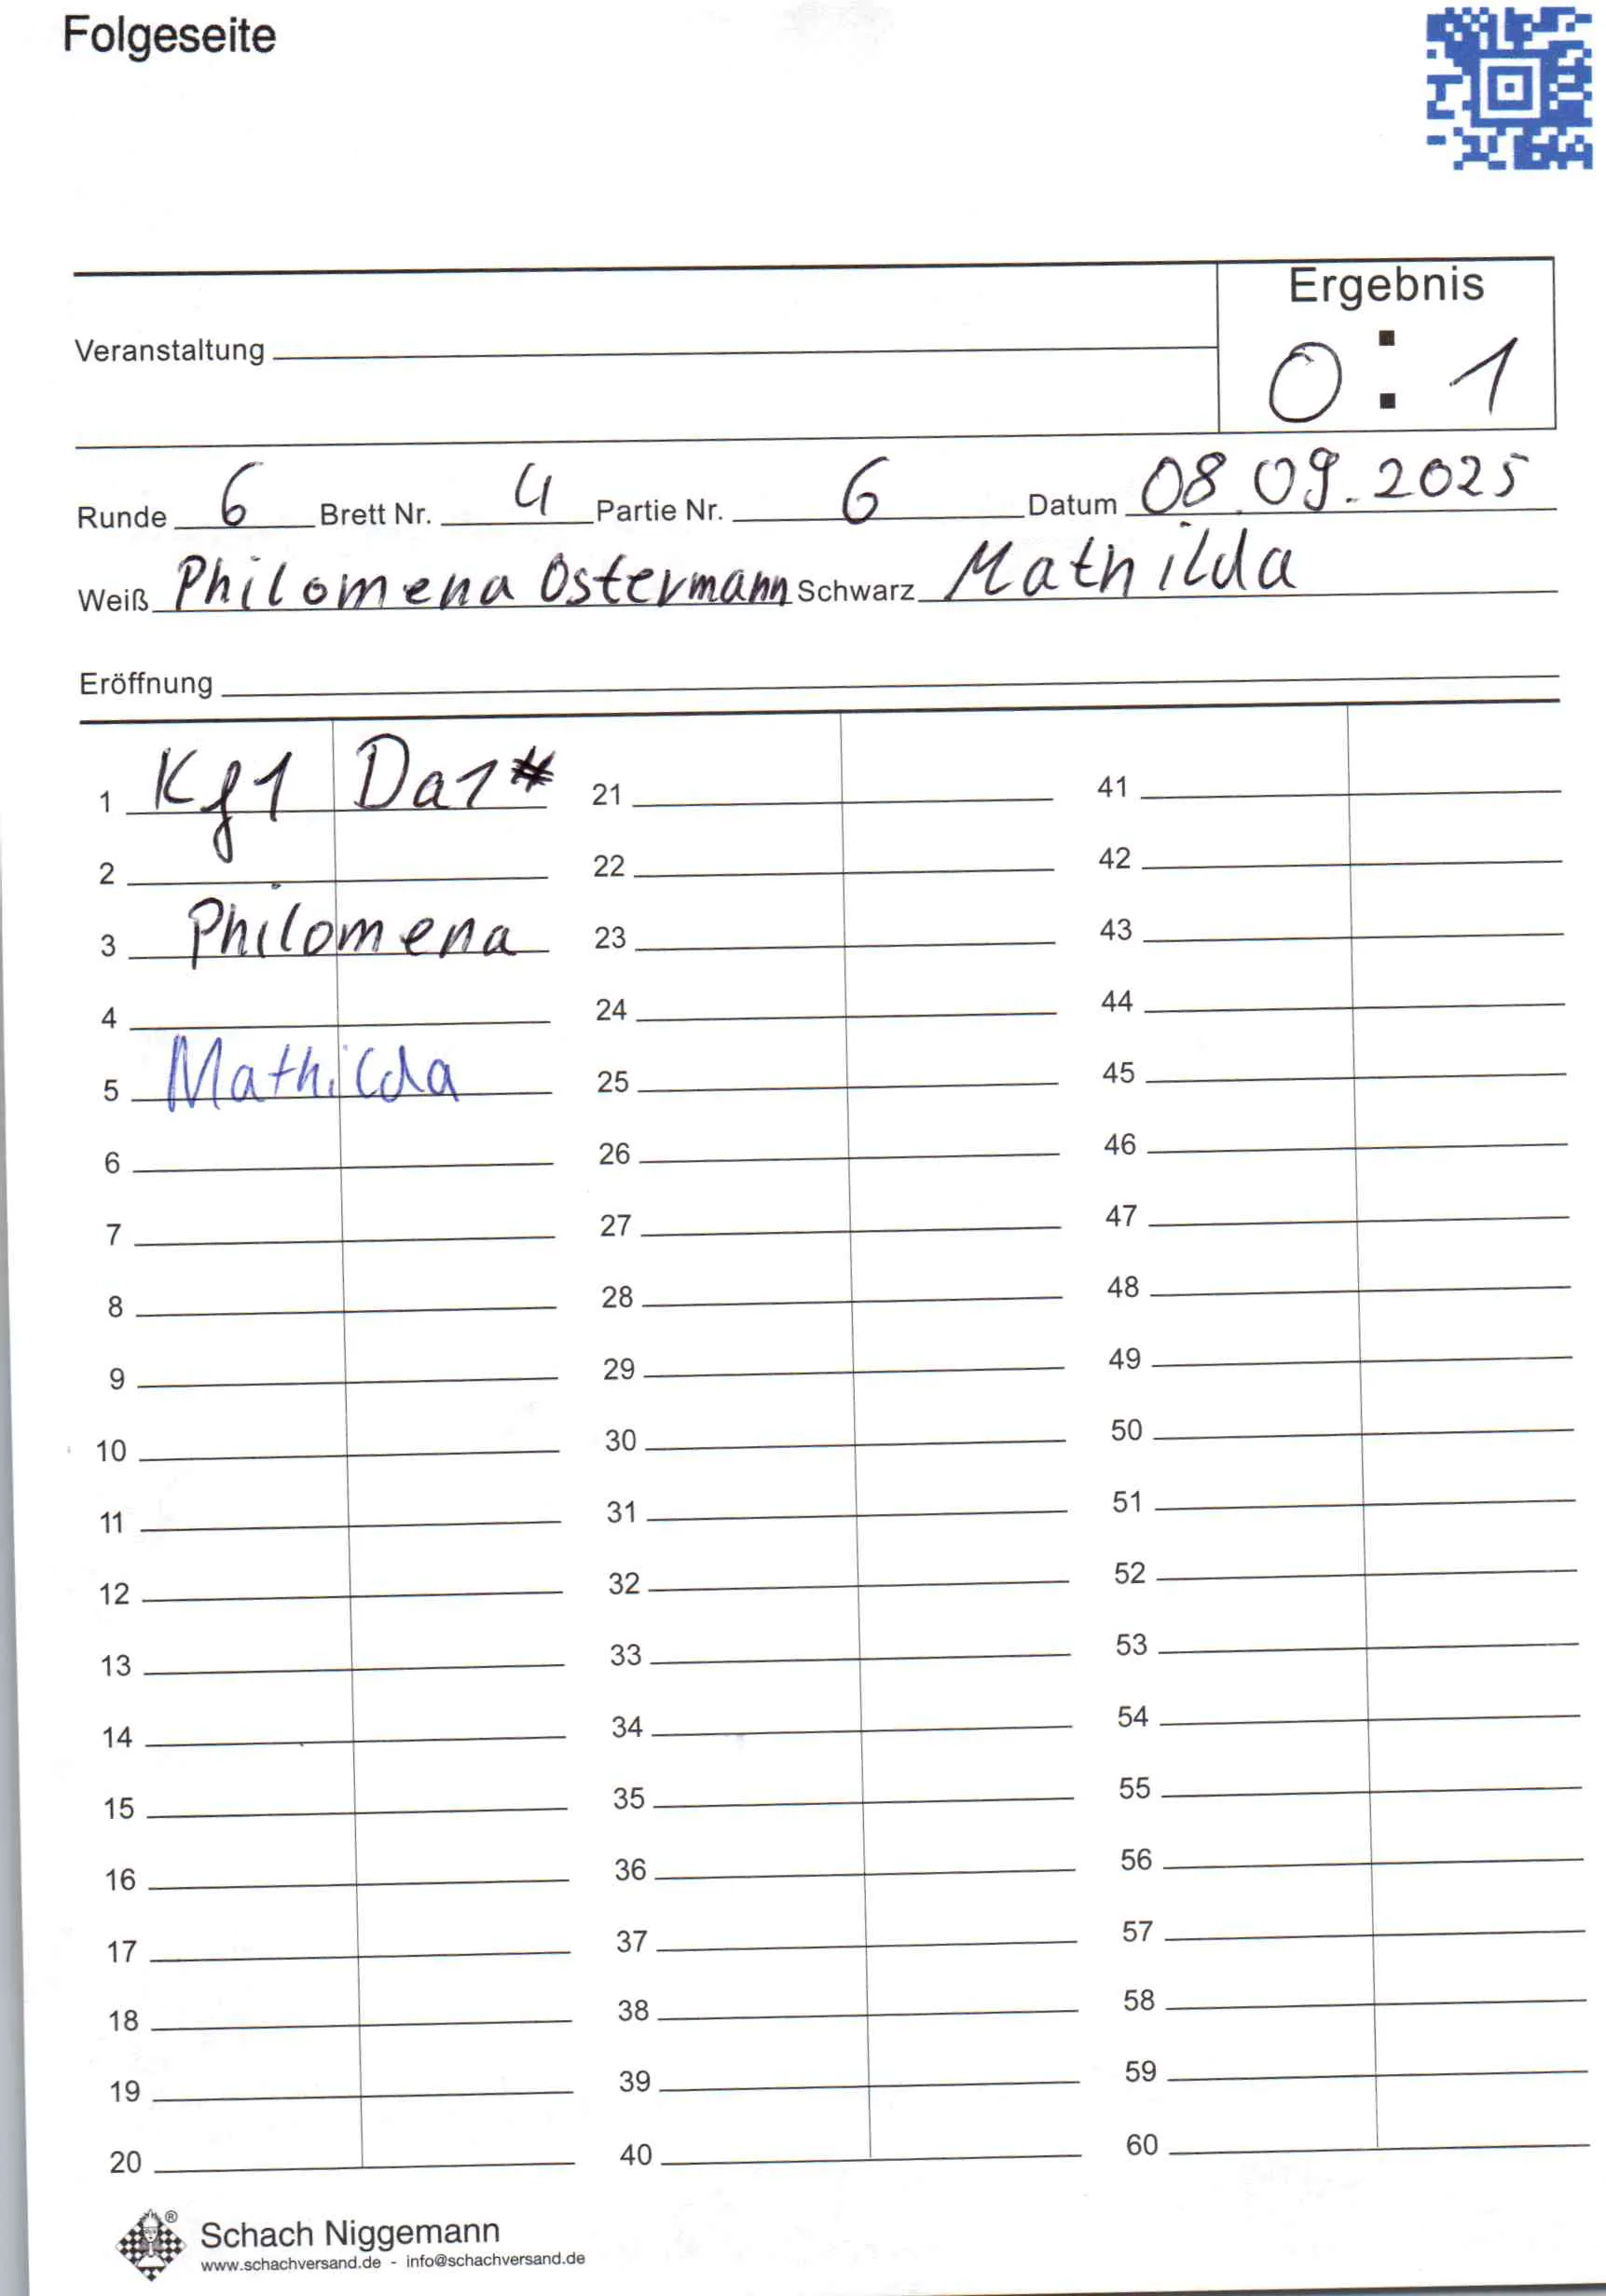 Folgeseite
Ergebnis
Veranstaltung
0 : 1
Runde 6 Brett Nr. 4 Partie Nr. 6 Datum 08.09.2025
Weiß Philomena Ostermann Schwarz Mathilda
Eröffnung
1 Kf1 Da1# 21 41
2 22 42
3 Philomena 23 43
4 24 44
5 Mathilda 25 45
6 26 46
7 27 47
8 28 48
9 29 49
10 30 50
11 31 51
12 32 52
13 33 53
14 34 54
15 35 55
16 36 56
17 37 57
18 38 58
19 39 59
20 40 60
® Schach Niggemann
www.schachversand.de - info@schachversand.de